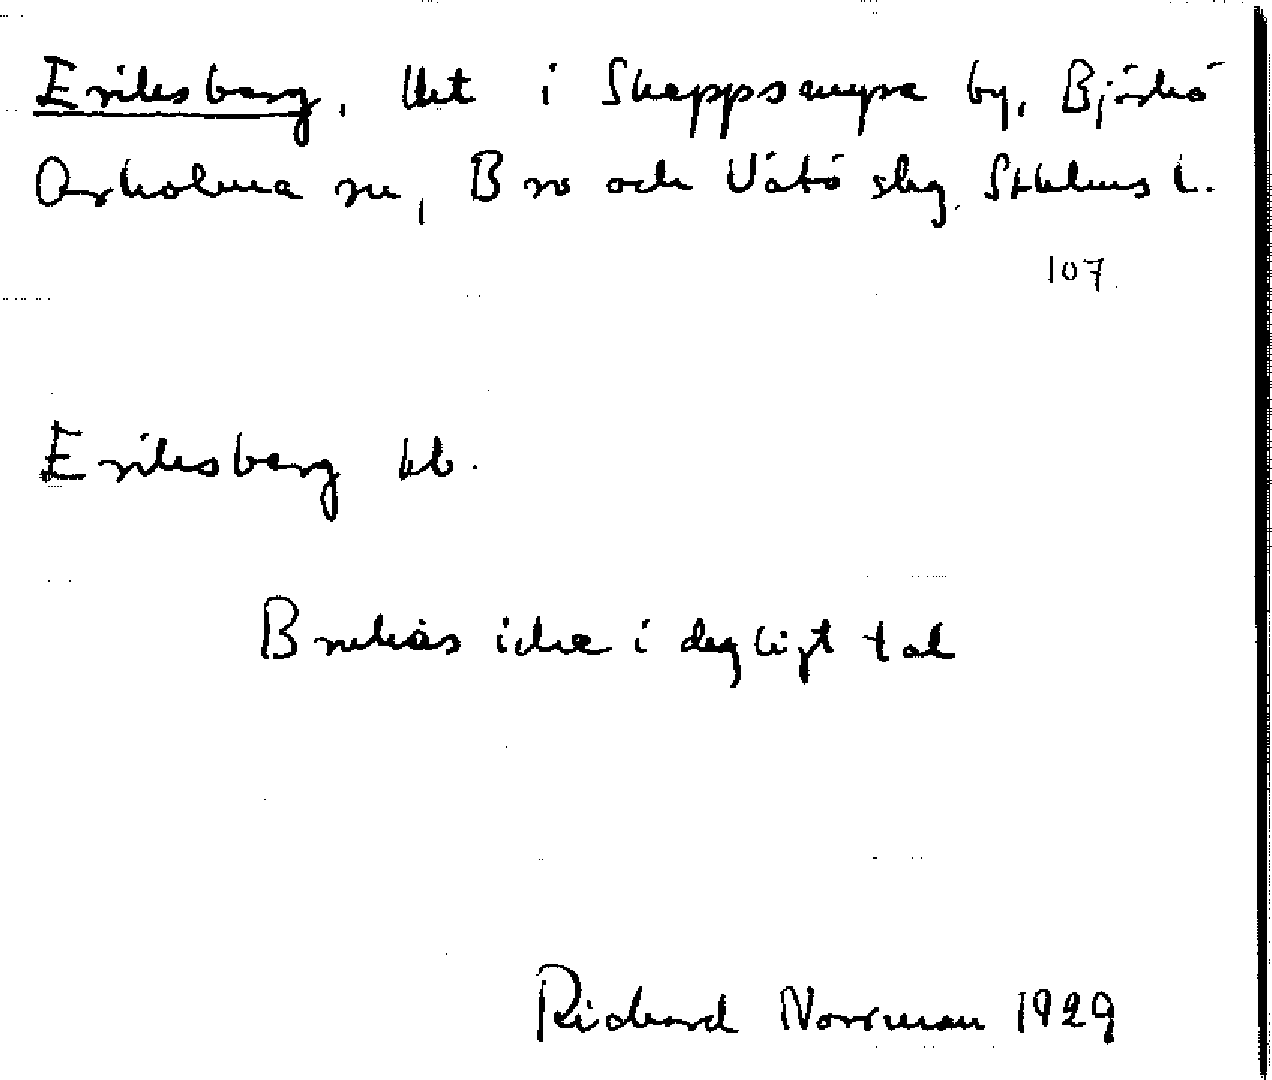 Eriksberg, lht i Skeppsmyra by, Björkö
Arholma sn, Bro och Vätö slg. Sthlms l.
107
Eriksberg kb.
Brukas icke i dagligt tal
Richard Norrman 1929